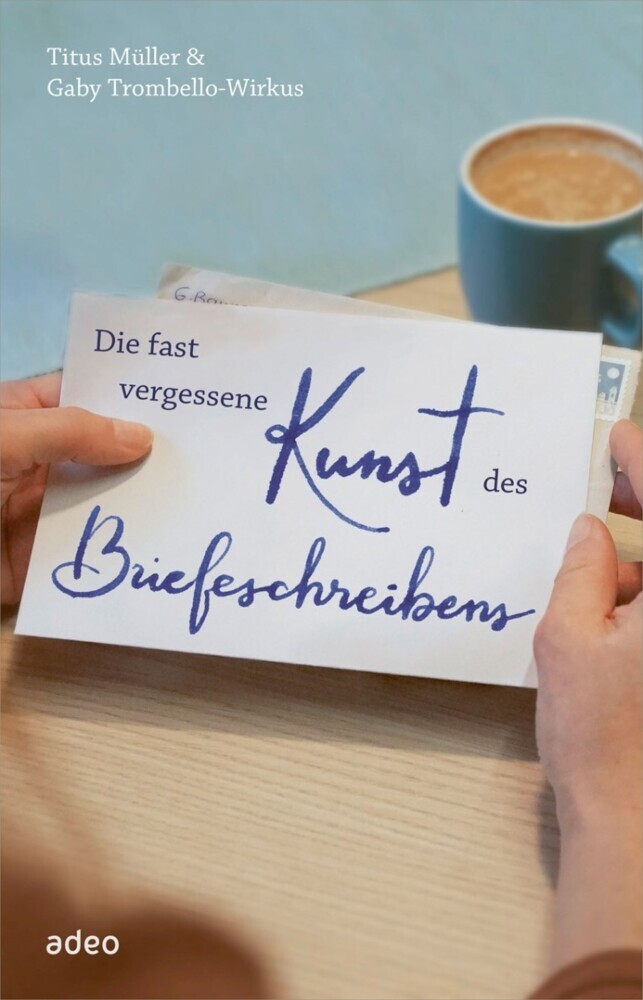 Titus Müller &
Gaby Trombello-Wirkus
Die fast
vergessene
Kunst des
Briefeschreibens
adeo